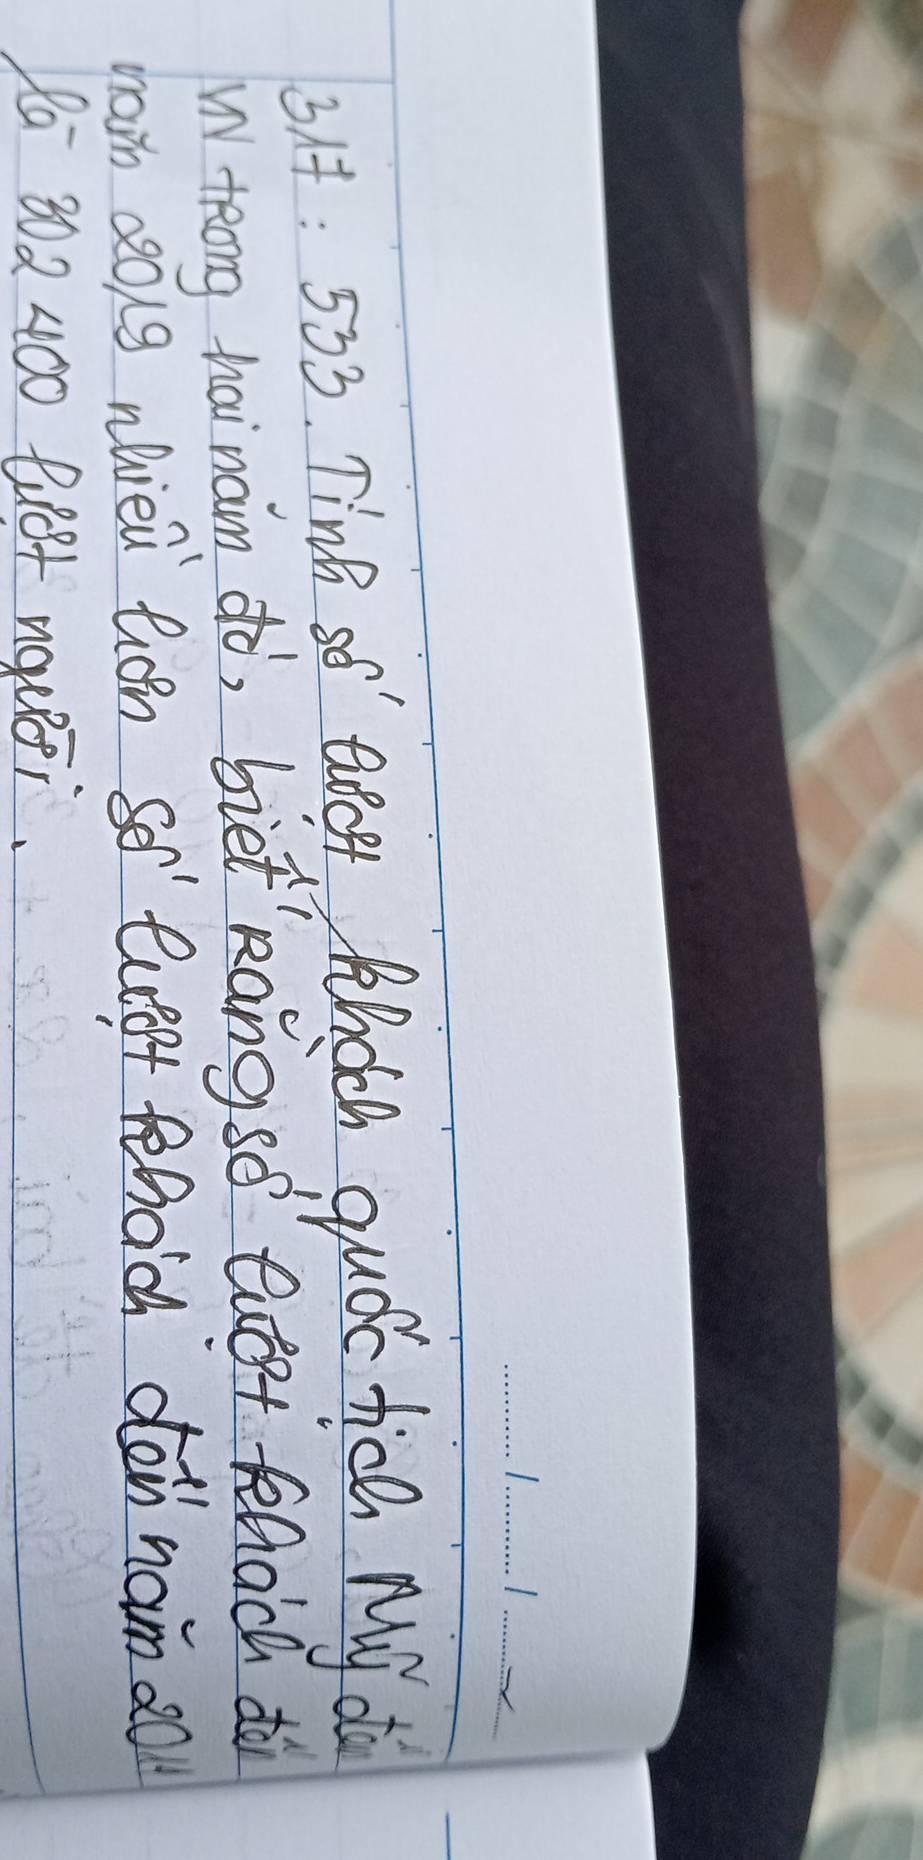 317 : 533. Tính số lượt khách quốc tịch Mỹ đến
VN trong hai năm đó, biết rằng số lượt khách đến
năm 2019 nhiều hơn số lượt khách đến năm 201
là 302 400 lượt người.